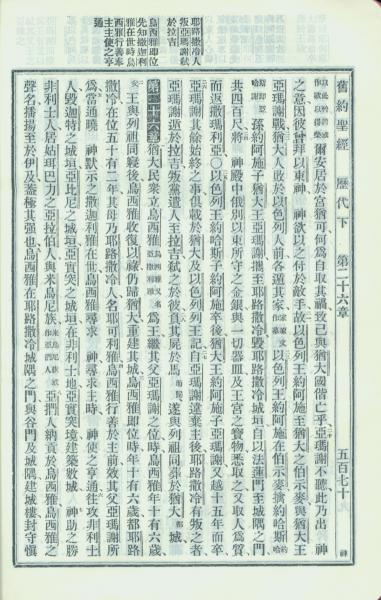 舊約聖經 歷代下 第二十六章 五百七十 神
爾安居於宮猶可何為自取其禍致己與猶大國偕亡乎亞瑪謝不聽此乃出 神
之意因彼曾拜以東神 神欲以之付於敵手故以色列王約阿施至猶大之伯示麥與猶大王
亞瑪謝戰猶大人敗於以色列人前各遁其家 以色列王約阿施在伯示麥擒約哈斯
孫約阿施子猶大王亞瑪謝攜至耶路撒冷毀耶路撒冷城垣自以法蓮門至城隅之門
共四百尺將 神殿中俄別以東所守之金銀與一切器皿及王宮之寶物悉取之又取人為質
而返撒瑪利亞○以色列王約哈斯子約阿施卒後猶大王約阿施子亞瑪謝又越十五年而卒
亞瑪謝其餘始終之事俱載於猶大及以色列列王記自亞瑪謝違棄主後耶路撒冷有叛之者
亞瑪謝遁於拉吉叛黨遣人至拉吉弒之於彼負其屍於馬 遂與列祖同葬於猶大都城
第二十六章 猶大民衆立烏西雅 為王繼其父亞瑪謝之位時烏西雅年十有六歲
矣王與列祖同寢後烏西雅收復以祿仍歸猶大重建其城烏西雅即位時年十有六歲都耶路
撒冷在位五十有二年其母乃耶路撒冷人名耶可利雅烏西雅行善於主前效其父亞瑪謝所
為當通曉 神默示之撒迦利雅在世烏西雅尋求 神尋求主時 神使之亨通往攻非利士
人毀迦特之城垣亞比尼之城垣亞實突之城垣在非利士地亞實突境建築數城 神助之勝
非利士人居姑珥巴力之亞拉伯人與米烏尼族 亞捫人納貢於烏西雅烏西雅之
聲名播揚至於伊及蓋極其強也烏西雅在耶路撒冷城隅之門與谷門及城隅建城樓封守慎
耶路撒冷人
叛亞瑪謝弒
於拉吉
烏西雅即位
先知撒迦利
雅在世時烏
西雅行善奉
主主使之亨
通